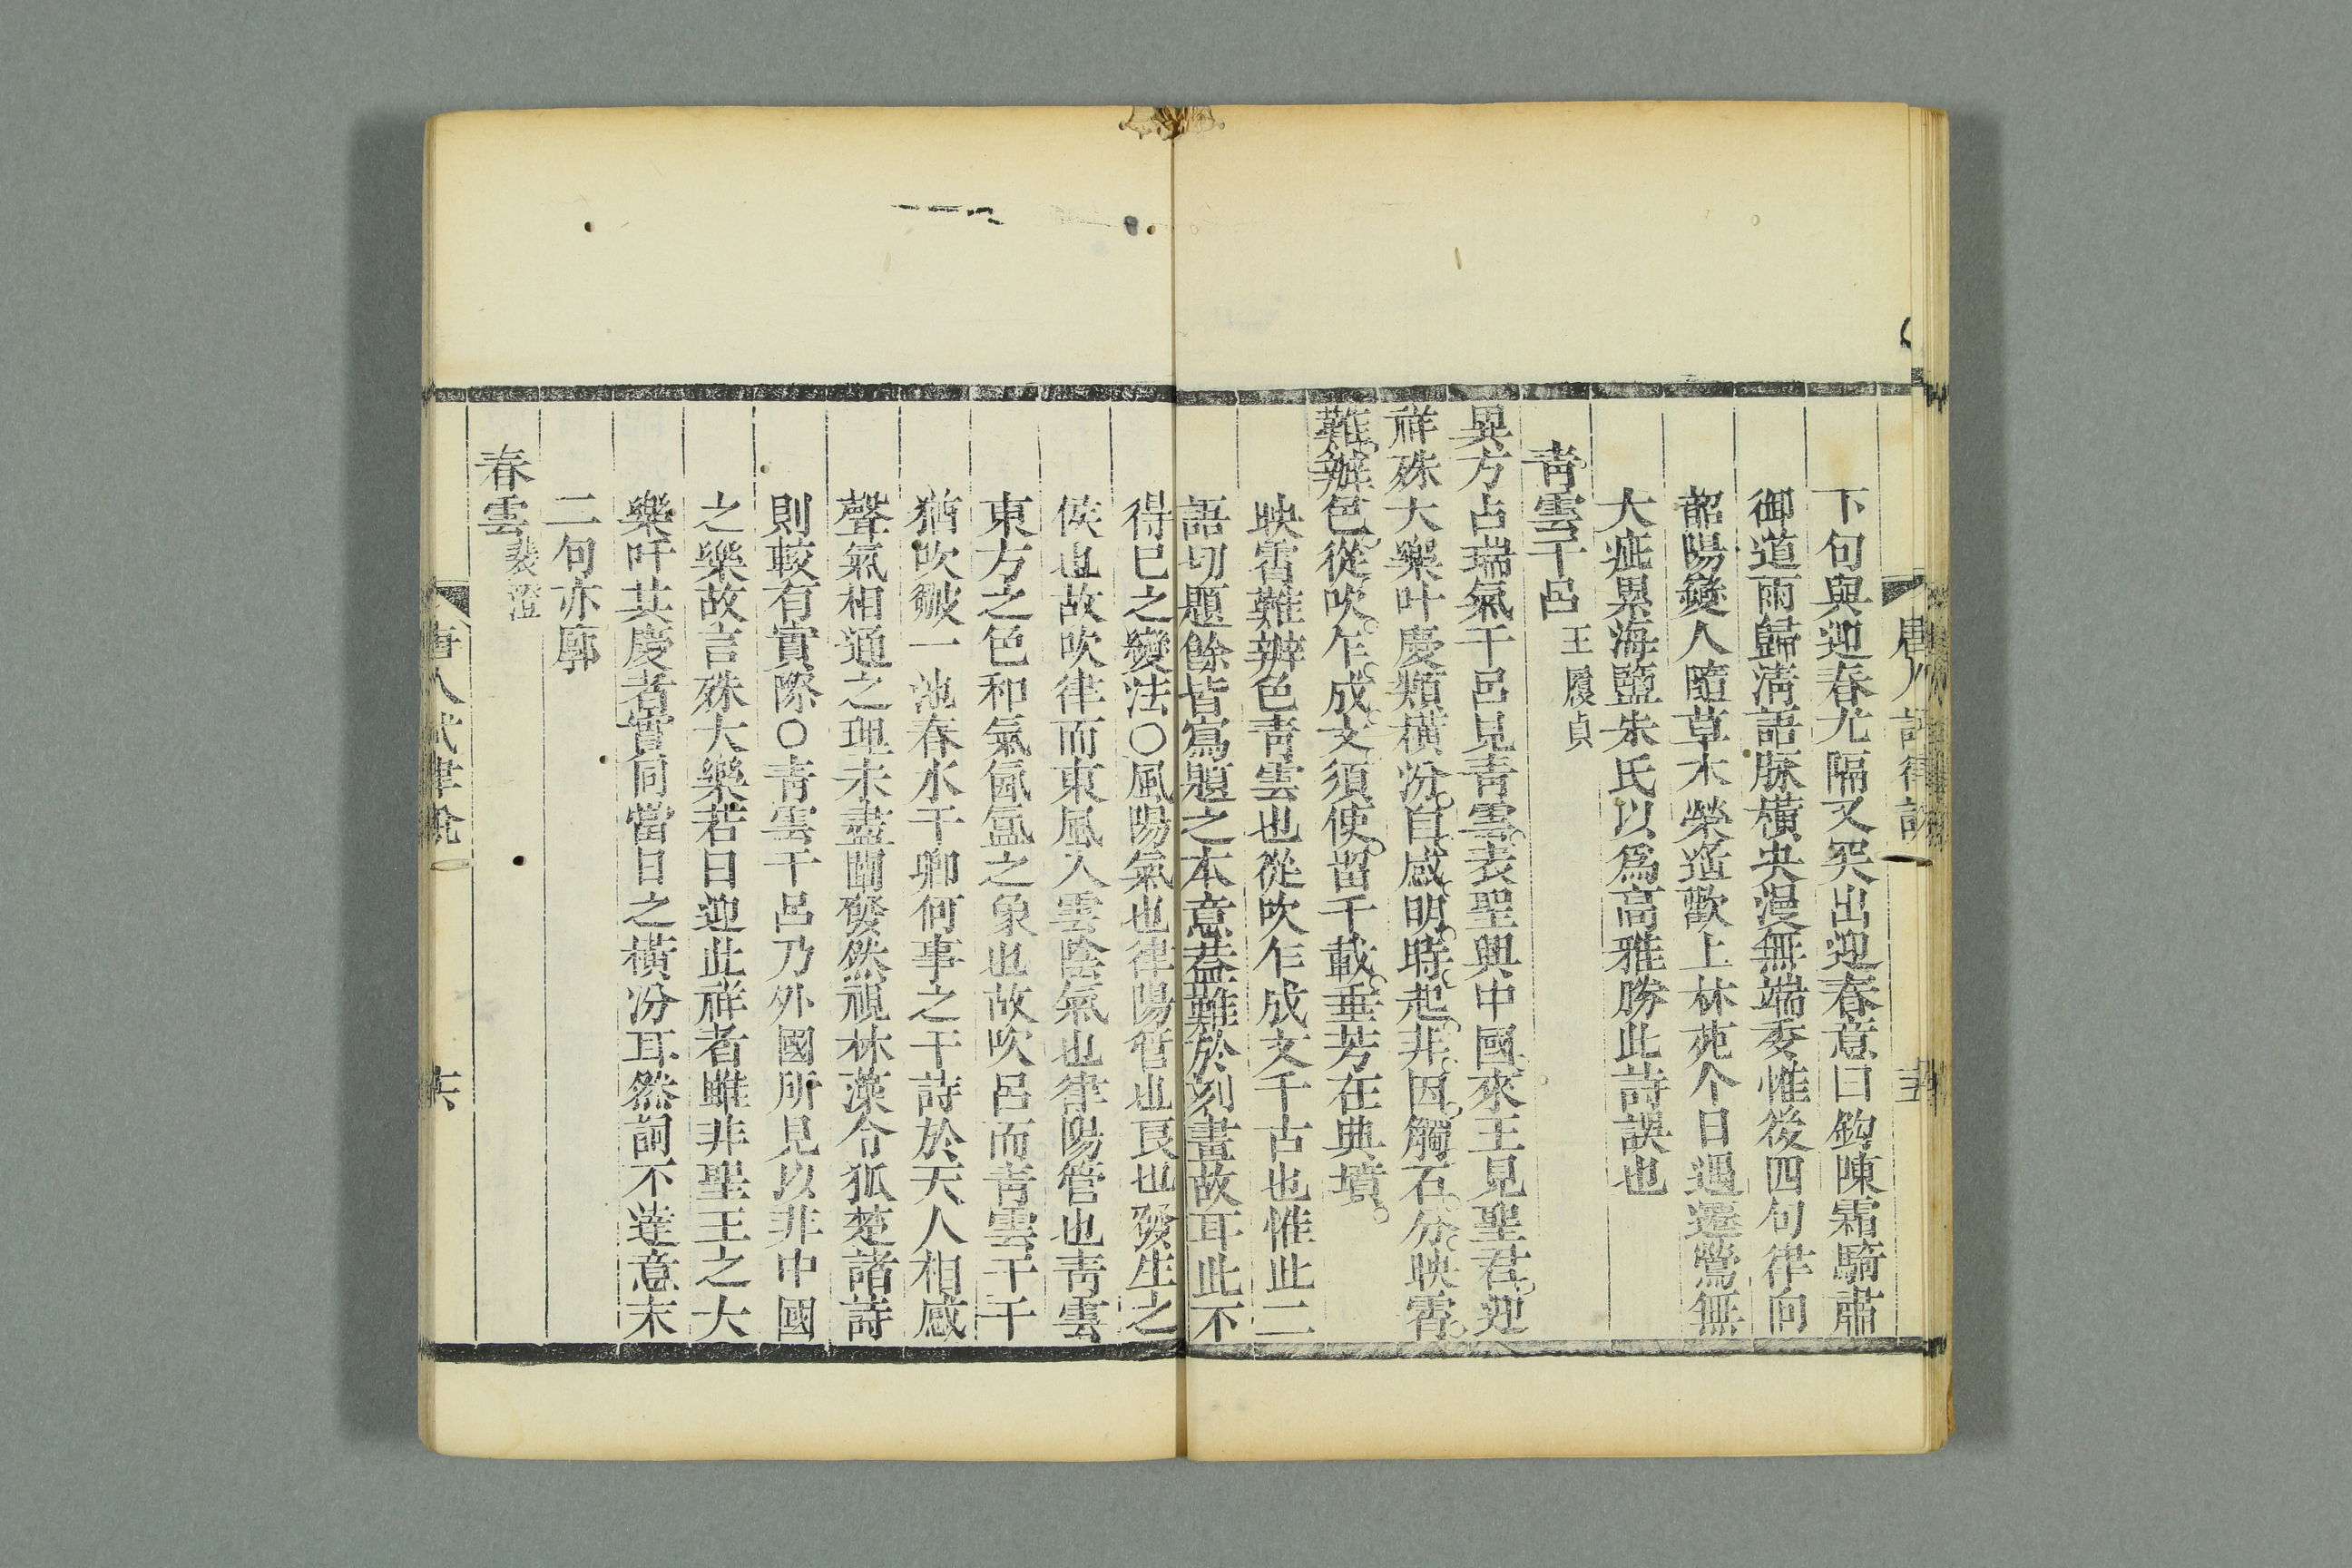 唐人試律說
下句與迎春尤隔又突出迎春意曰鈎陳霜騎肅
御道雨歸淸語脉橫決漫無端委惟後四句律向
韶陽變人隨草木榮遙歡上林苑今日遇遷鶯無
大疵累海鹽朱氏以爲高雅勝此詩誤也
靑雲干呂 王履貞
異方占瑞氣干呂見靑雲表聖興中國來王見聖君迎
祥殊大樂叶慶類橫汾自感明時起非因觸石分映霄
難辨色從吹乍成文須使留千載垂芳在典墳
映霄難辨色靑雲也從吹乍成文干古也惟此二
語切題餘皆寫題之本意葢難於刻畫故耳此不
得已之變法○風陽氣也律陽管也艮也發生之
侯也故吹律而東風入雲陰氣也律陽管也靑雲
東方之色和氣氤氳之象也故吹呂而靑雲干干
猶吹皺一池春水干卿何事之干詩於天人相感
聲氣相通之理未盡闡發然視林藻令狐楚諸詩
則較有實際○靑雲干呂乃外國所見以非中國
之樂故言殊大樂若曰迎此祥者雖非聖王之大
樂吁其慶者實同當日之橫汾耳然詞不達意末
二句亦廓
春雲 裴澄
唐人試律說